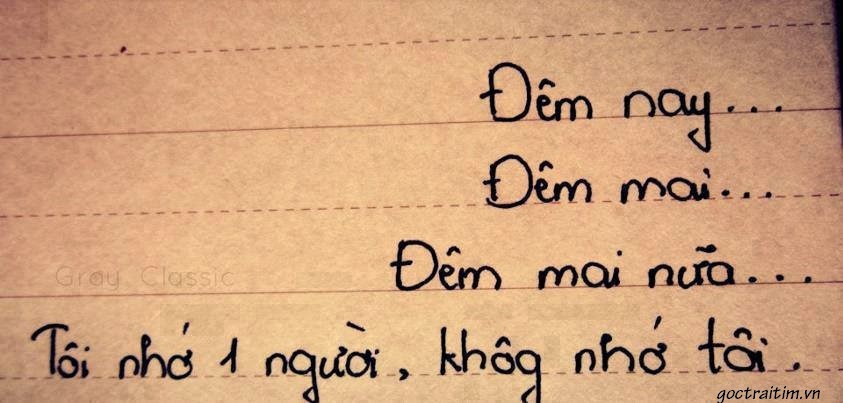 Đêm nay...
Đêm mai...
Đêm mai nữa...
Gray Classic
Tôi nhớ 1 người, khôg nhớ tôi.
goctraitim.vn